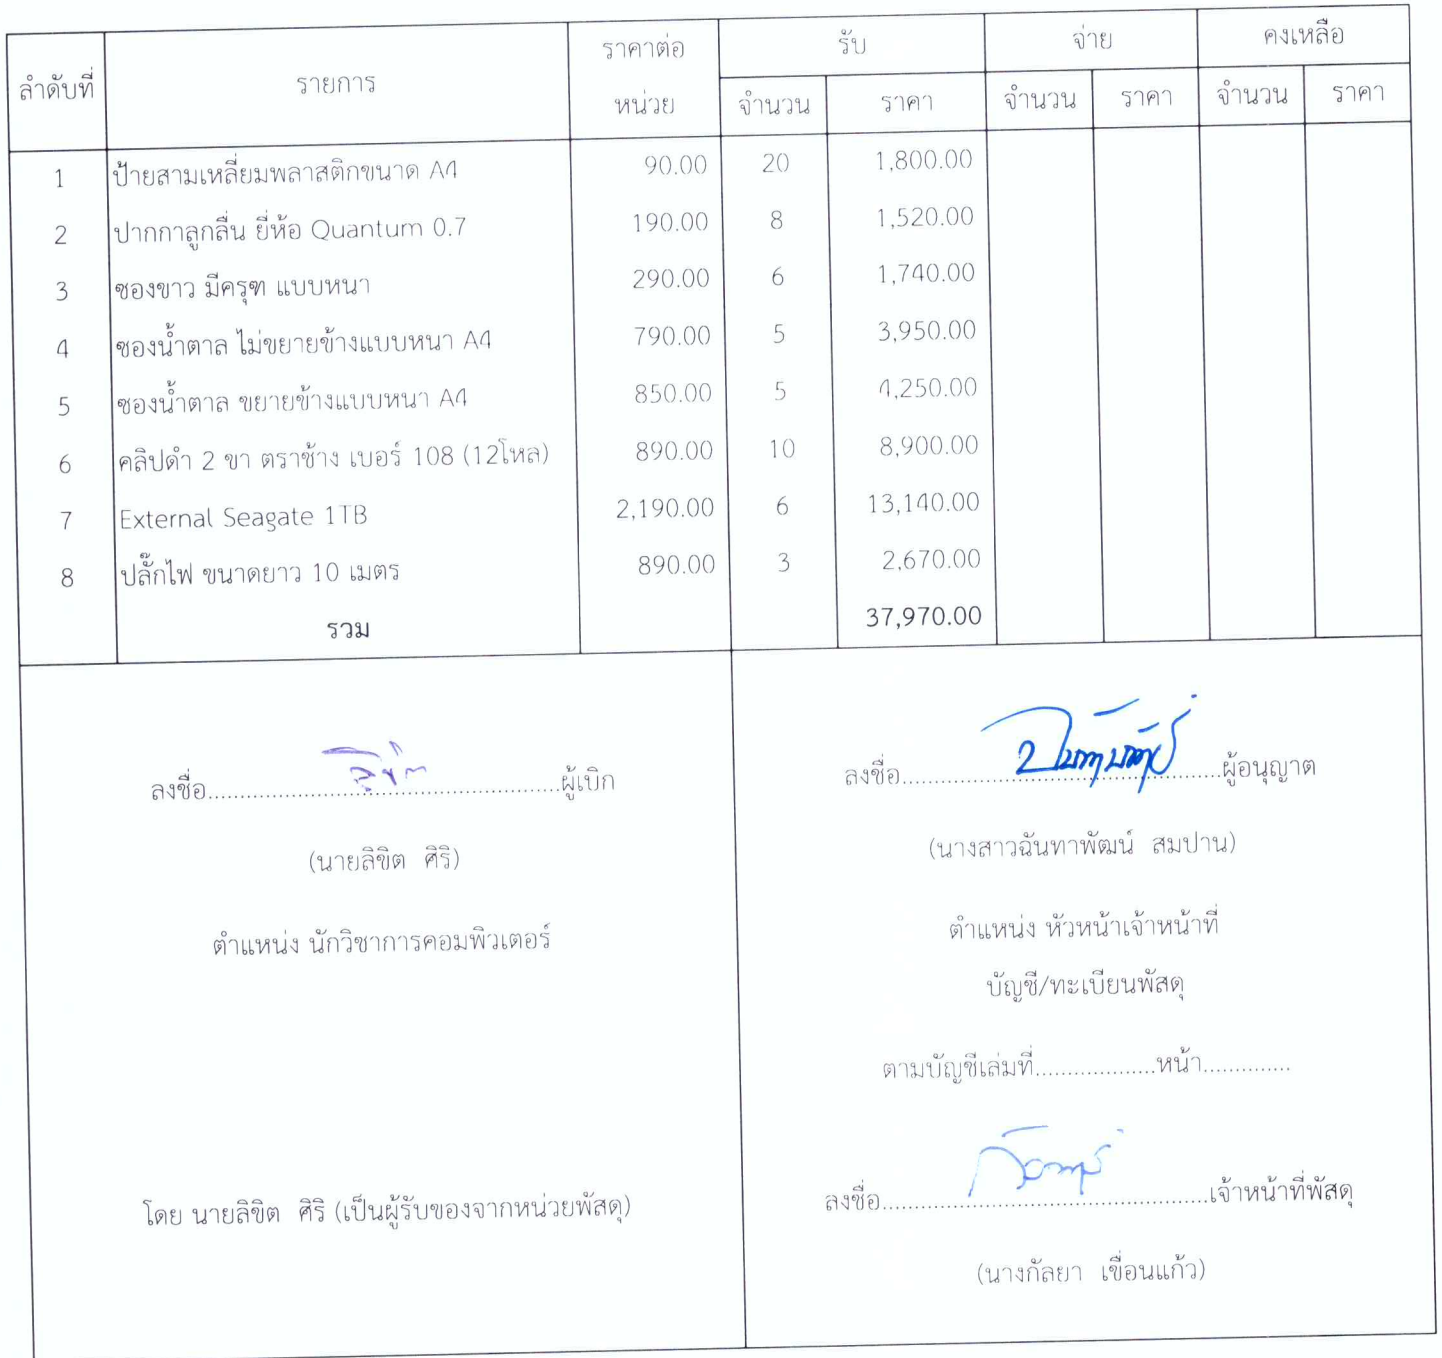 ลำดับที่ รายการ ราคาต่อหน่วย รับ จ่าย คงเหลือ
จำนวน ราคา จำนวน ราคา จำนวน ราคา
1 ป้ายสามเหลี่ยมพลาสติกขนาด A4 90.00 20 1,800.00
2 ปากกาลูกลื่น ยี่ห้อ Quantum 0.7 190.00 8 1,520.00
3 ซองขาว มีครุฑ แบบหนา 290.00 6 1,740.00
4 ซองน้ำตาล ไม่ขยายข้างแบบหนา A4 790.00 5 3,950.00
5 ซองน้ำตาล ขยายข้างแบบหนา A4 850.00 5 4,250.00
6 คลิปดำ 2 ขา ตราช้าง เบอร์ 108 (12โหล) 890.00 10 8,900.00
7 External Seagate 1TB 2,190.00 6 13,140.00
8 ปลั๊กไฟ ขนาดยาว 10 เมตร 890.00 3 2,670.00
รวม 37,970.00
ลงชื่อ............................................ผู้เบิก
(นายลิขิต ศิริ)
ตำแหน่ง นักวิชาการคอมพิวเตอร์
โดย นายลิขิต ศิริ (เป็นผู้รับของจากหน่วยพัสดุ)
ลงชื่อ........................................ผู้อนุญาต
(นางสาวฉันทาพัฒน์ สมปาน)
ตำแหน่ง หัวหน้าเจ้าหน้าที่
บัญชี/ทะเบียนพัสดุ
ตามบัญชีเล่มที่...................หน้า..............
ลงชื่อ....................................................เจ้าหน้าที่พัสดุ
(นางกัลยา เขื่อนแก้ว)